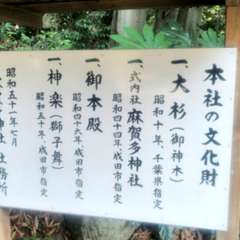 本社の文化財
一、大杉(御神木)
昭和十年、千葉県指定
一、式内社 麻賀多神社
昭和四十四年、成田市指定
一、御本殿
昭和四十六年、成田市指定
一、神楽(獅子舞)
昭和五十年、成田市指定
昭和五十一年七月
社務所